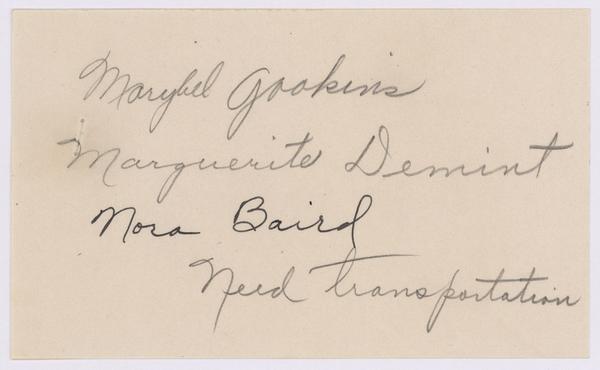 Marybel Gookins
Marguerite Demint
Nora Baird
Need transportation